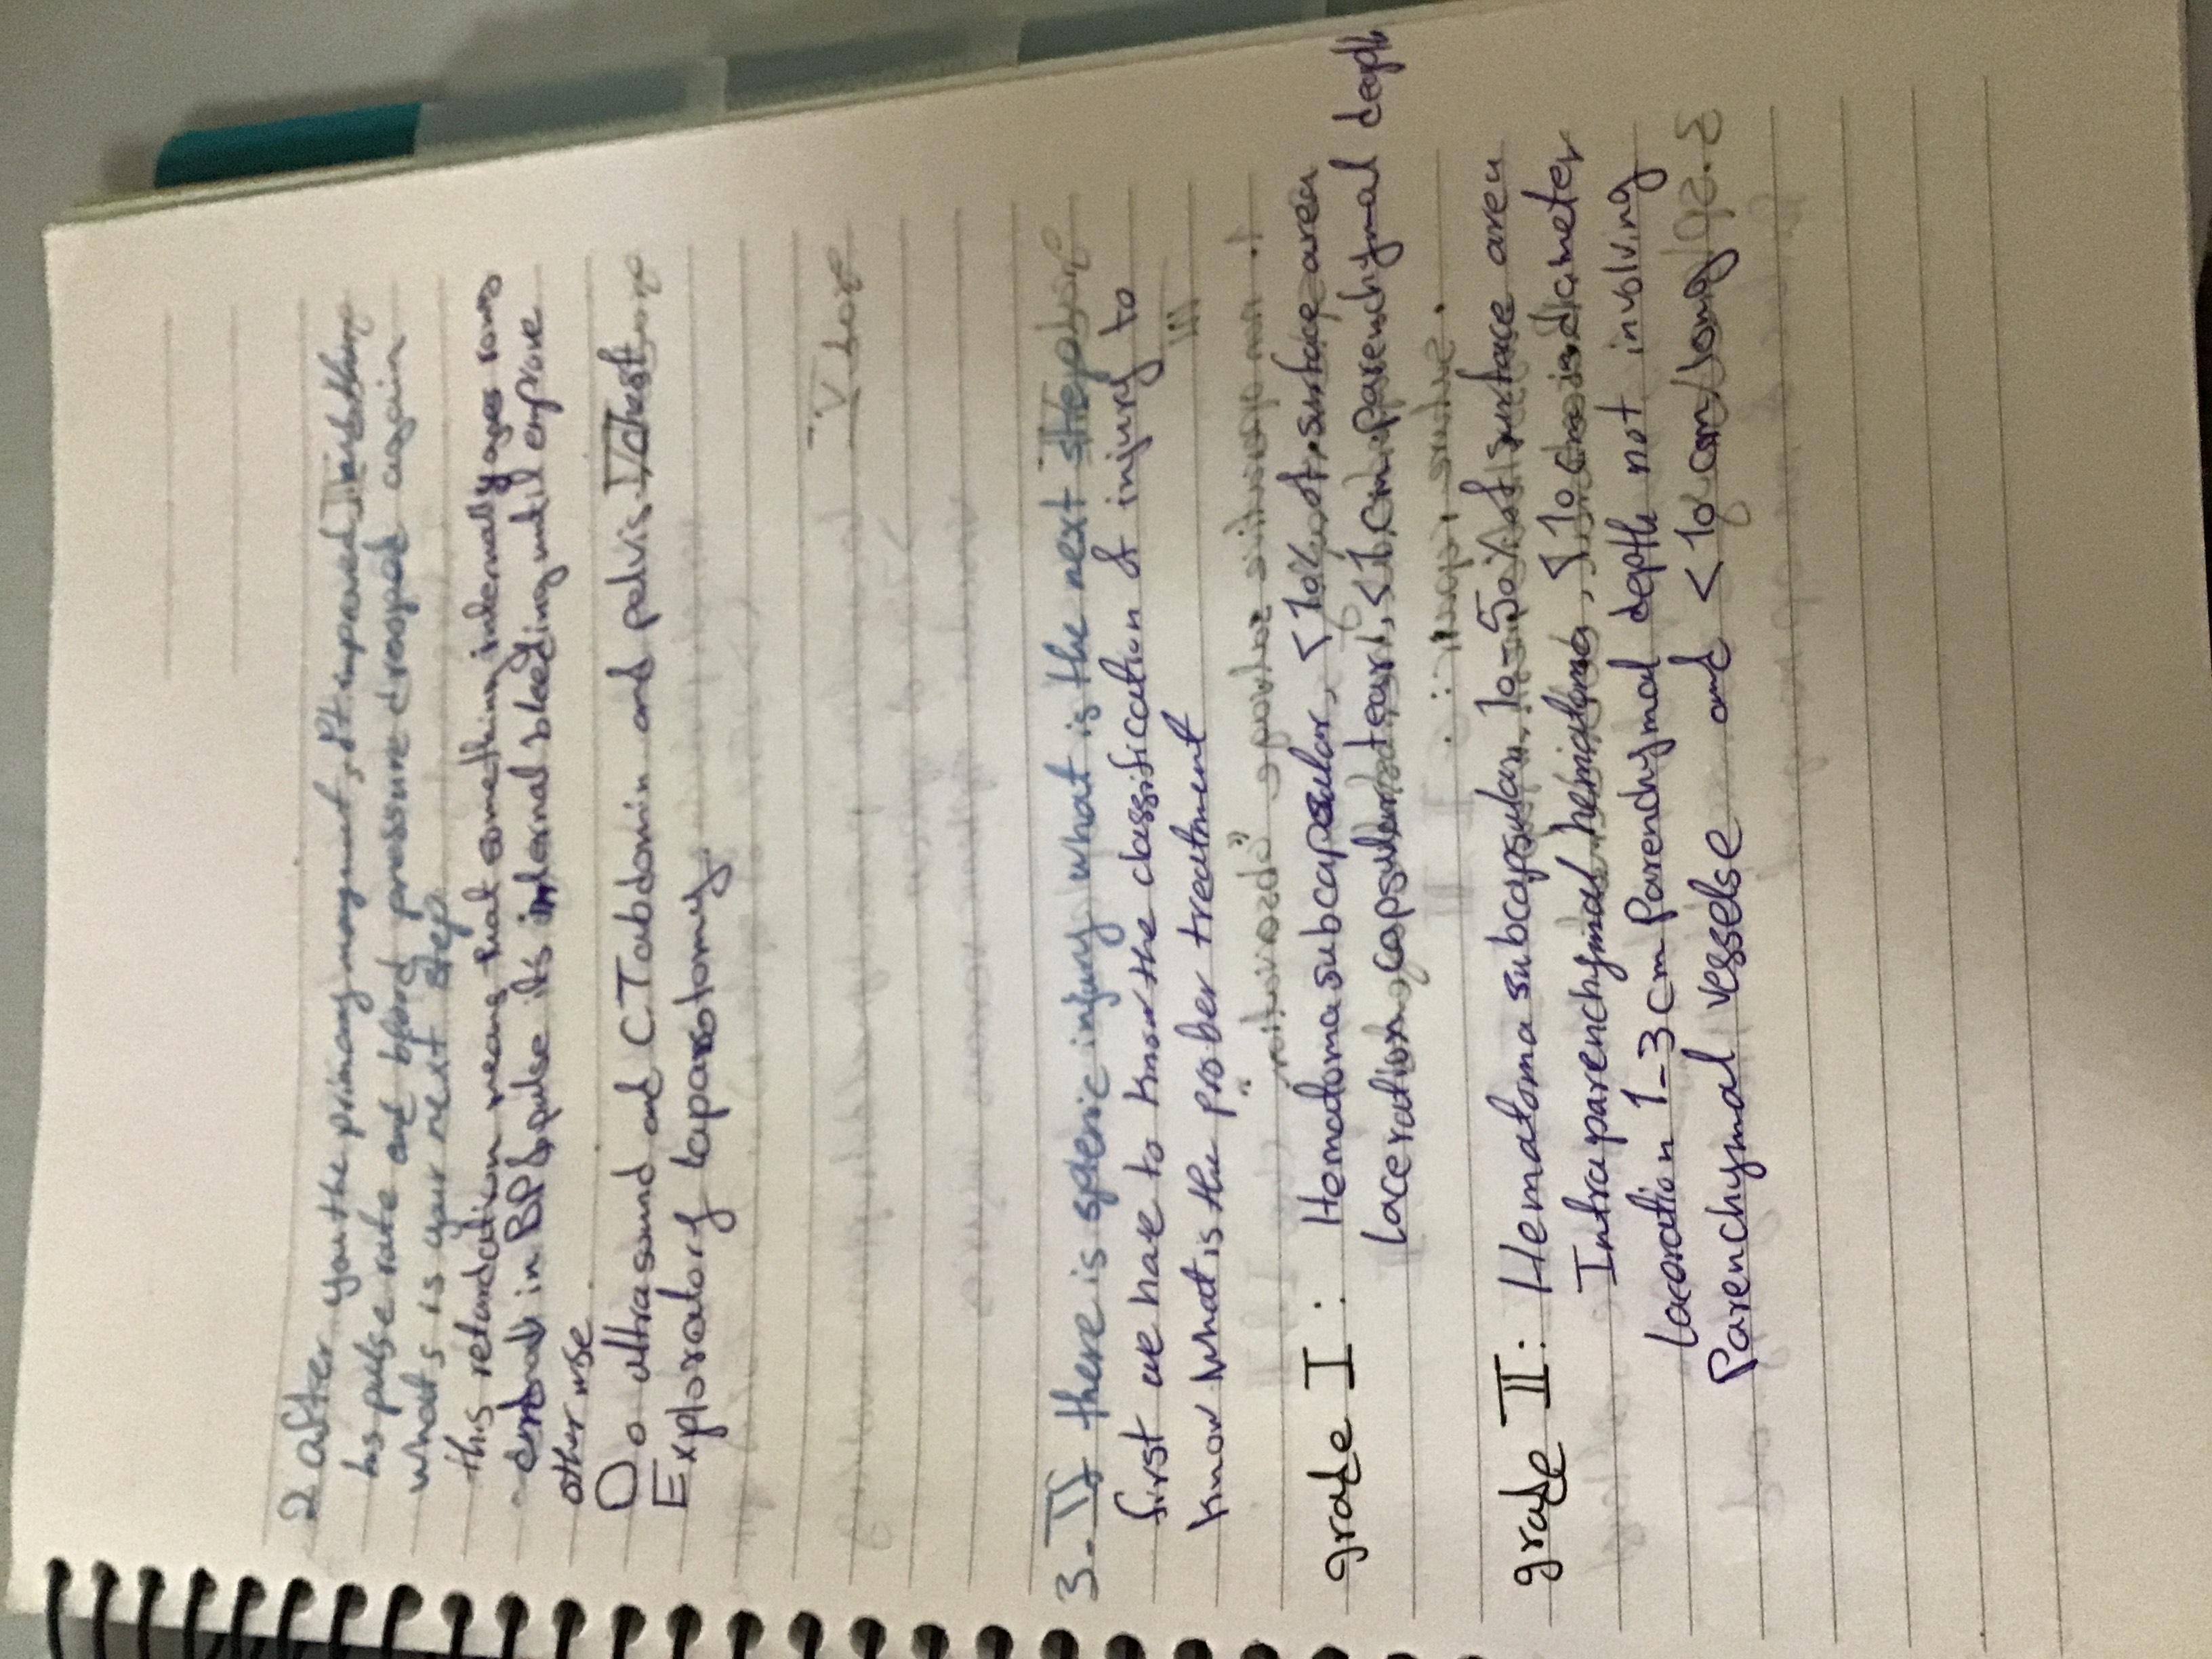 2 after you the primary mangment, Pt improved
his pulse rate and blood pressure dropped again
what's is your next step
this means that something internally goes
in BP & pulse its internal bleeding until
other wise
Do ultrasound and CT abdomin and pelvis, chest
Exploratory laparotomy
3. If there is splenic injury what is the next step
first we have to know the classification of injury to
know what is the prober treatment
grade I: Hematoma subcapsular, <10% of surface area
Laceration capsular tear, <1 cm parenchymal depth
grade II: Hematoma subcapsular, 10-50% of surface area
Intraparenchymal hematoma,
Laceration 1-3 cm Parenchymal depth not involving
Parenchymal vesselse and <10 cm long